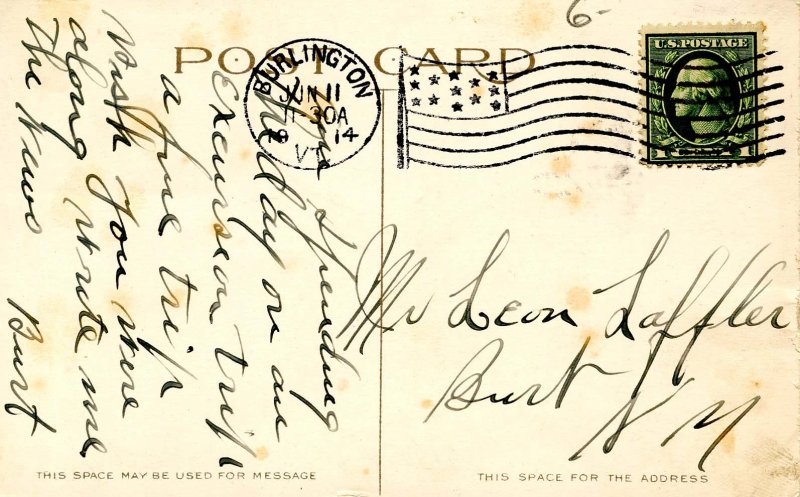 6-
POST CARD
BURLINGTON
JUN 11
11-30A
1914
VT.
U.S. POSTAGE
1
I am spending
the day on an
Excursion trip
a fine trip
Wish you were
along write me
the news
Burt
Mr Leon Laffler
Burt
N Y
THIS SPACE MAY BE USED FOR MESSAGE
THIS SPACE FOR THE ADDRESS